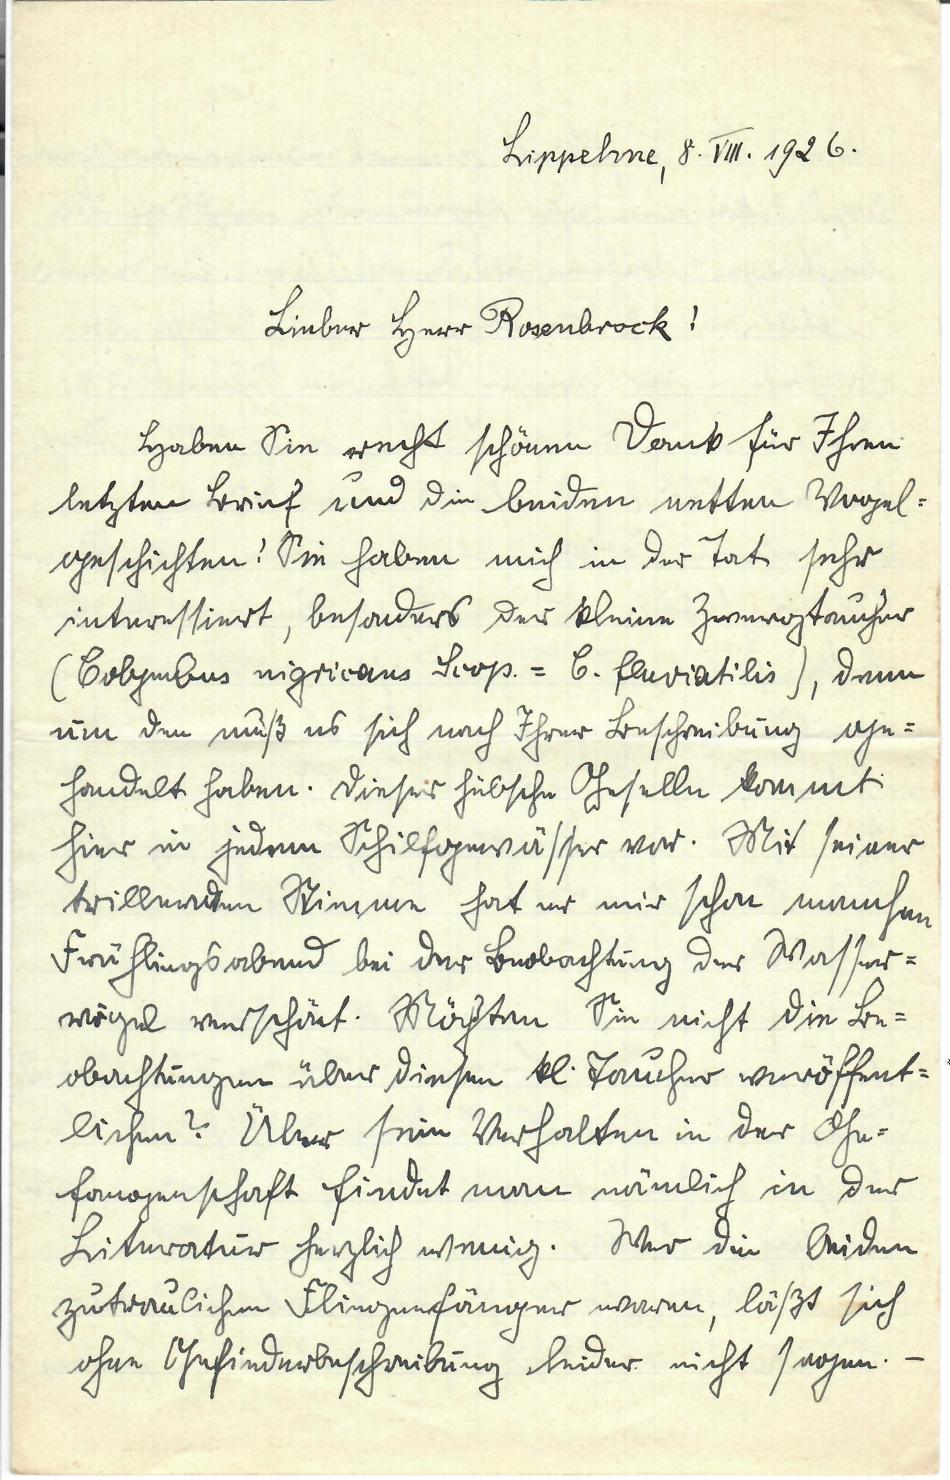 Lippehne, 8. VIII. 1926.
Lieber Herr Rosenbrock!
Haben Sie recht schönen Dank für Ihren
letzten Brief und die beiden netten Vogel=
geschichten! Sie haben mich in der Tat sehr
interessiert, besonders der kleine Zwergtaucher
(Colymbus nigricans Scop. = C. fluviatilis), denn
um den muß es sich nach Ihrer Beschreibung ge=
handelt haben. Dieser hübsche Geselle kommt
hier in jedem Schilfgewässer vor. Mit seiner
trillernden Stimme hat er mir schon manchen
Frühlingsabend bei der Beobachtung der Wasser=
vögel verschönt. Möchten Sie nicht die Be=
obachtungen über diesen kl. Taucher veröffent=
lichen? Über sein Verhalten in der Ge=
fangenschaft findet man nämlich in der
Literatur herzlich wenig. Wer die beiden
zutraulichen Fliegenfänger waren, läßt sich
ohne Gefiederbeschreibung leider nicht sagen. –